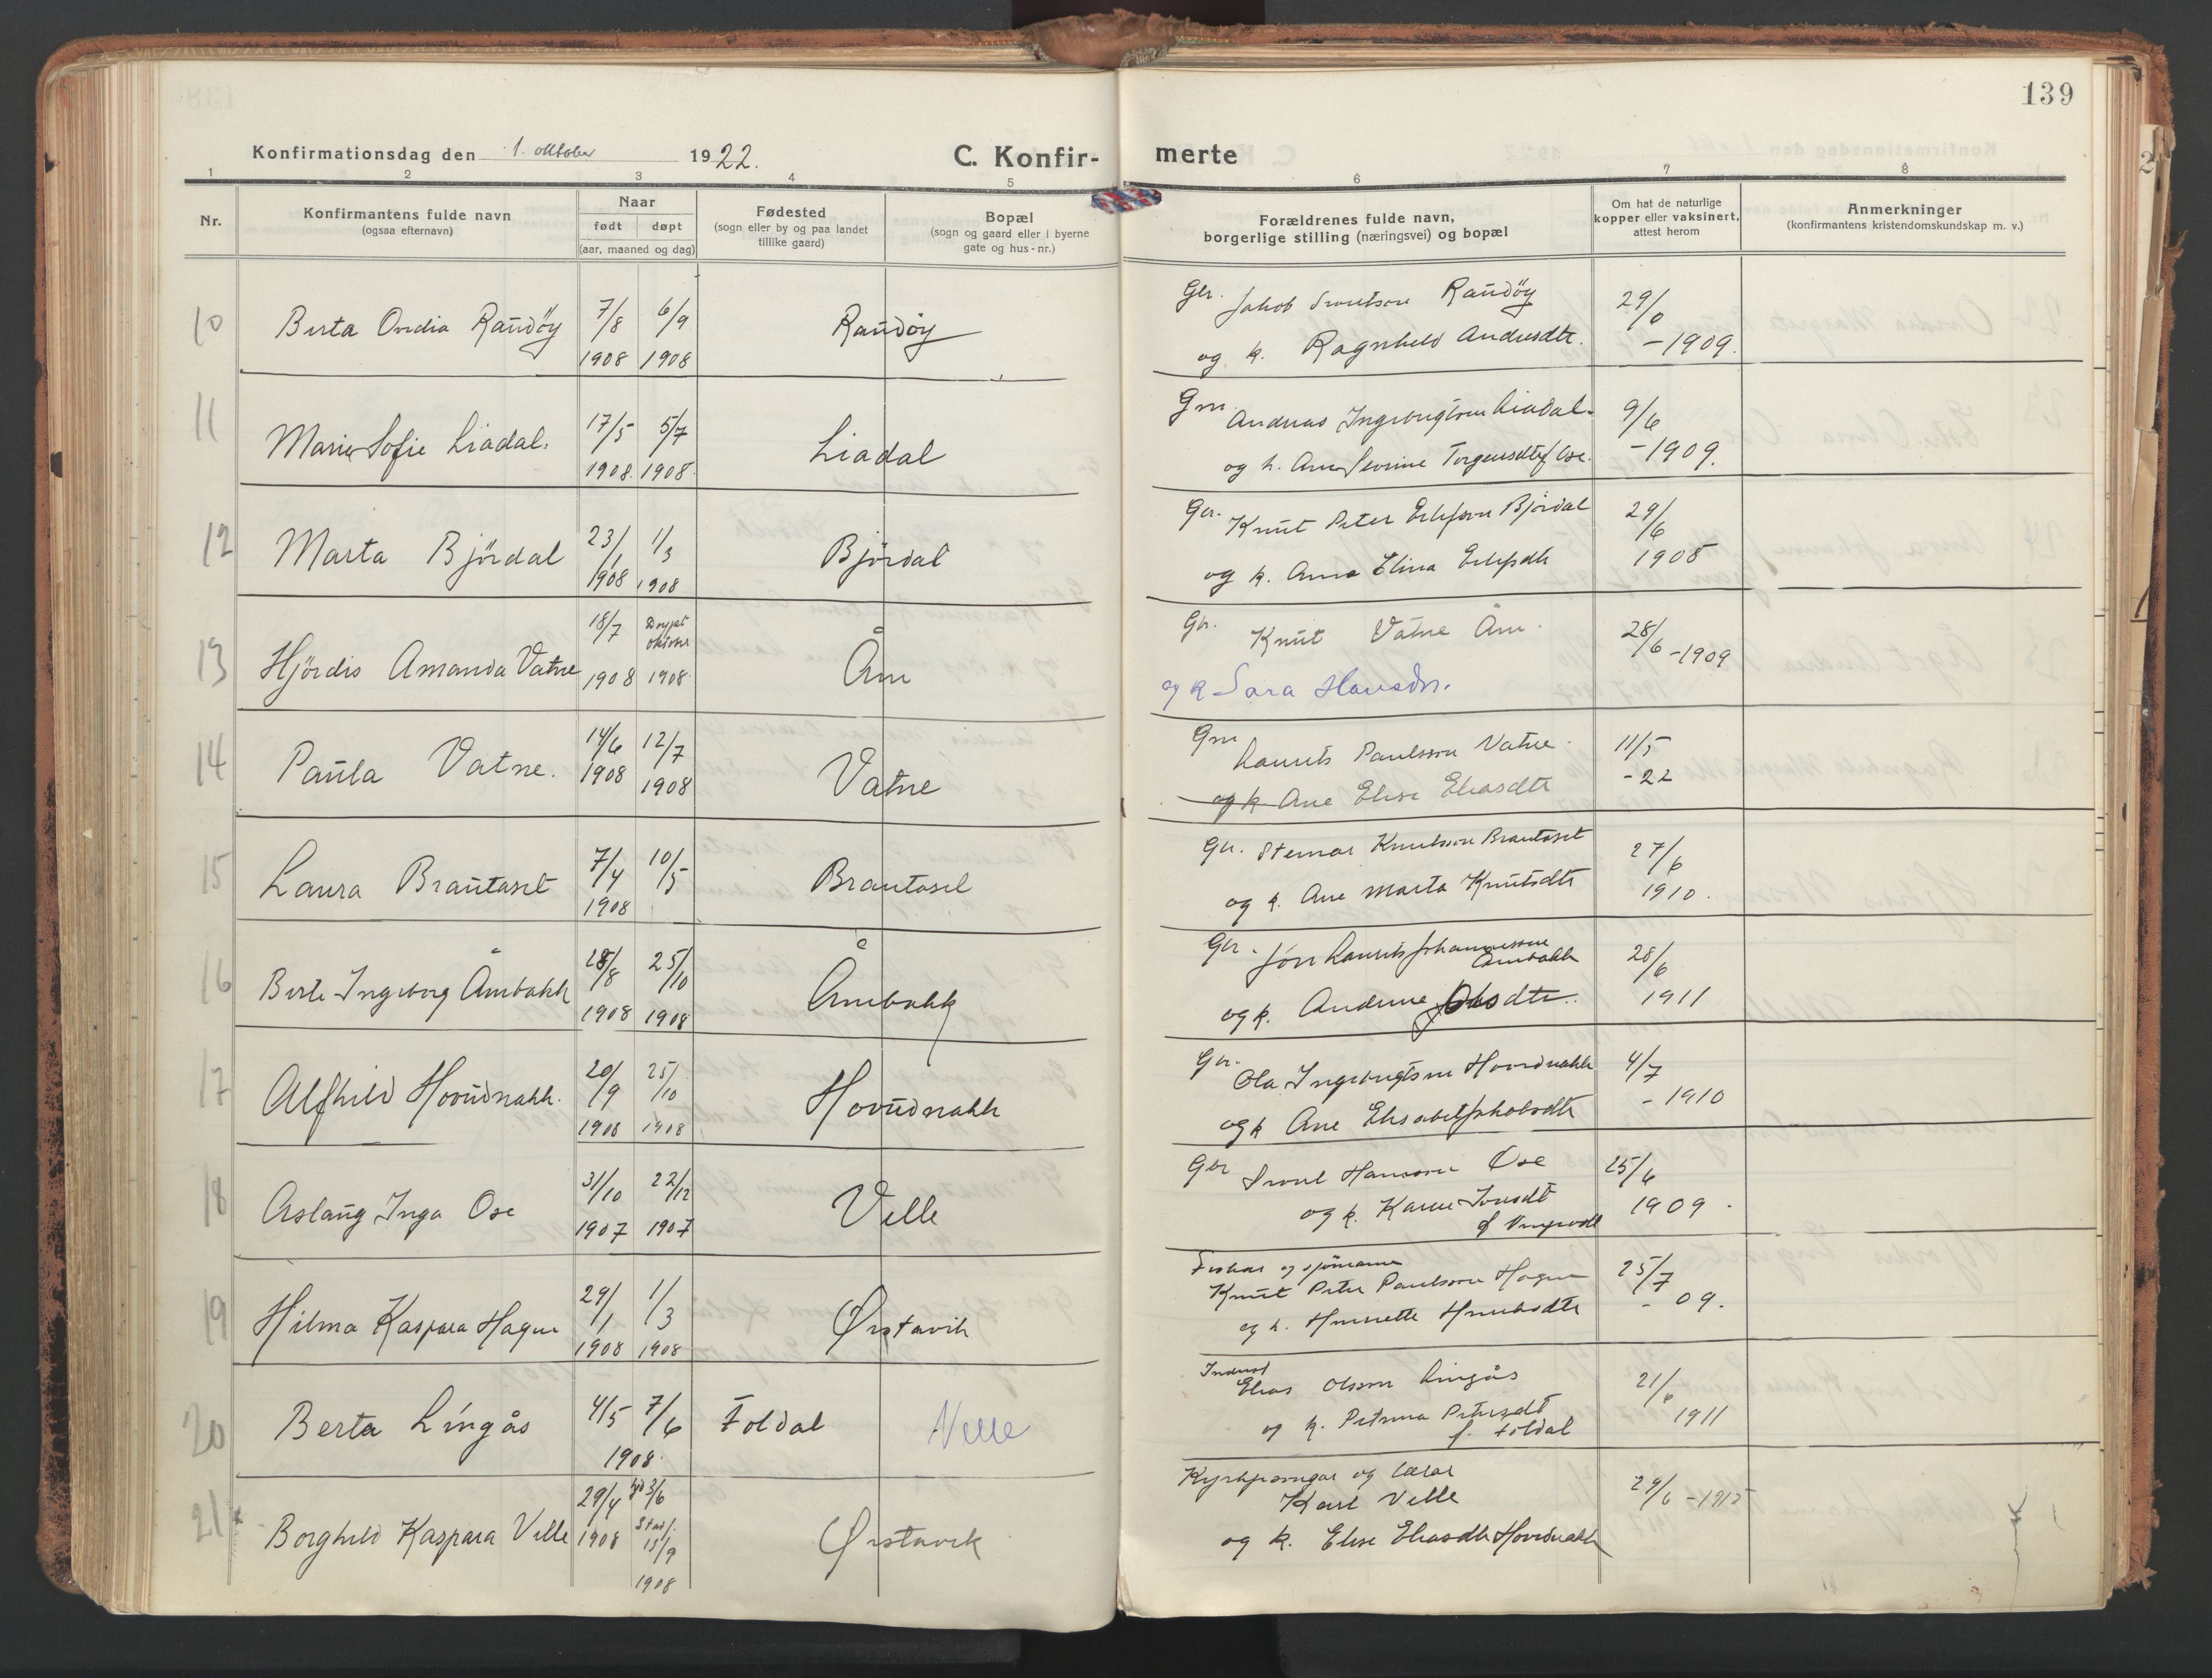 139
Konfirmationsdag den 1. oktober 1922.
C. Konfir-
merte
1 2 3 4 5 6 7 8
Nr.
Konfirmantens fulde navn
(ogsaa efternavn)
Naar
født døpt
(aar, maaned og dag)
Fødested
(sogn eller by og paa landet
tillike gaard)
Bopæl
(sogn og gaard eller i byerne
gate og hus-nr.)
Forældrenes fulde navn,
borgerlige stilling (næringsvei) og bopæl
Om hat de naturlige
kopper eller vaksinert,
attest herom
Anmerkninger
(konfirmantens kristendomskundskap m. v.)
10 Berta Ovidia Randöy 7/8 1908 6/9 1908 Randöy
Gbr. Jakob Sivertson Randöy
og k. Ragnhild Andersdtr. 29/6 -1909.
11 Marie Sofie Liadal. 17/5 1908. 5/7 1908. Liadal
Gm. Andreas Ingebrigtson Liadal.
og k. Ane Severine Torgeirsdtr f Ose. 9/6 -1909.
12 Marta Björdal 23/1 1908 1/3 1908 Björdal
Gbr. Knut Peter Björdal
og k. Anna Elina 29/6 1908
13 Hjördis Amanda Vatne 18/7 1908 oktober 1908 Åm
Gbr. Knut Vatne Åm.
og k Sara Hansdr. 28/6 -1909
14 Paula Vatne. 14/6 1908 12/7 1908 Vatne
Gm Laurits Paulsson Vatne.
og k Ane Elise Eliasdtr 11/5 -22
15 Laura Brautaset 7/4 1908 10/5 Brautaset
Gbr. Steinar Knutsson Brautaset
og k. Ane Marta Knutsdtr 27/6 1910.
16 Berte Ingeborg Åmbakk 28/8 1908 25/10 1908 Åmbakk
Gbr. Jon Laurits Johannesson
Åmbakk
og k. Andrine 28/6 1911
17 Alfhild Hovudnakk. 20/9 1908 25/10 1908 Hovudnakk
Gbr. Ola Ingebrigtson Hovdnakk
og k Ane Elisabet Jakobsdtr 4/7 -1910
18 Aslaug Inga Ose 31/10 1907 22/12 1907 Velle
Gbr Sivert Hansson Ose
og k. Karen Iversdt 25/6 1909.
19 Hilma Kaspara Hagen 29/1 1908 1/3 1908 Ørstavik
Fiskar og sjömann
Knut Peter Paulsson Hagen
og k. 25/7 -09.
20 Berta Lingås 4/5 7/6 1908. Foldal Velle
Elias Olsson Lingås
og k. Petrina Petersdt
f. Foldal 21/6 1911
21 Borghild Kaspara Velle 29/4 1908 3/6
Stadf.
13/9
1908 Ørstavik
Kyrkjesongar og lærar
Karl Velle
og k. Elise Eliasdtr Hovdnakk 29/6